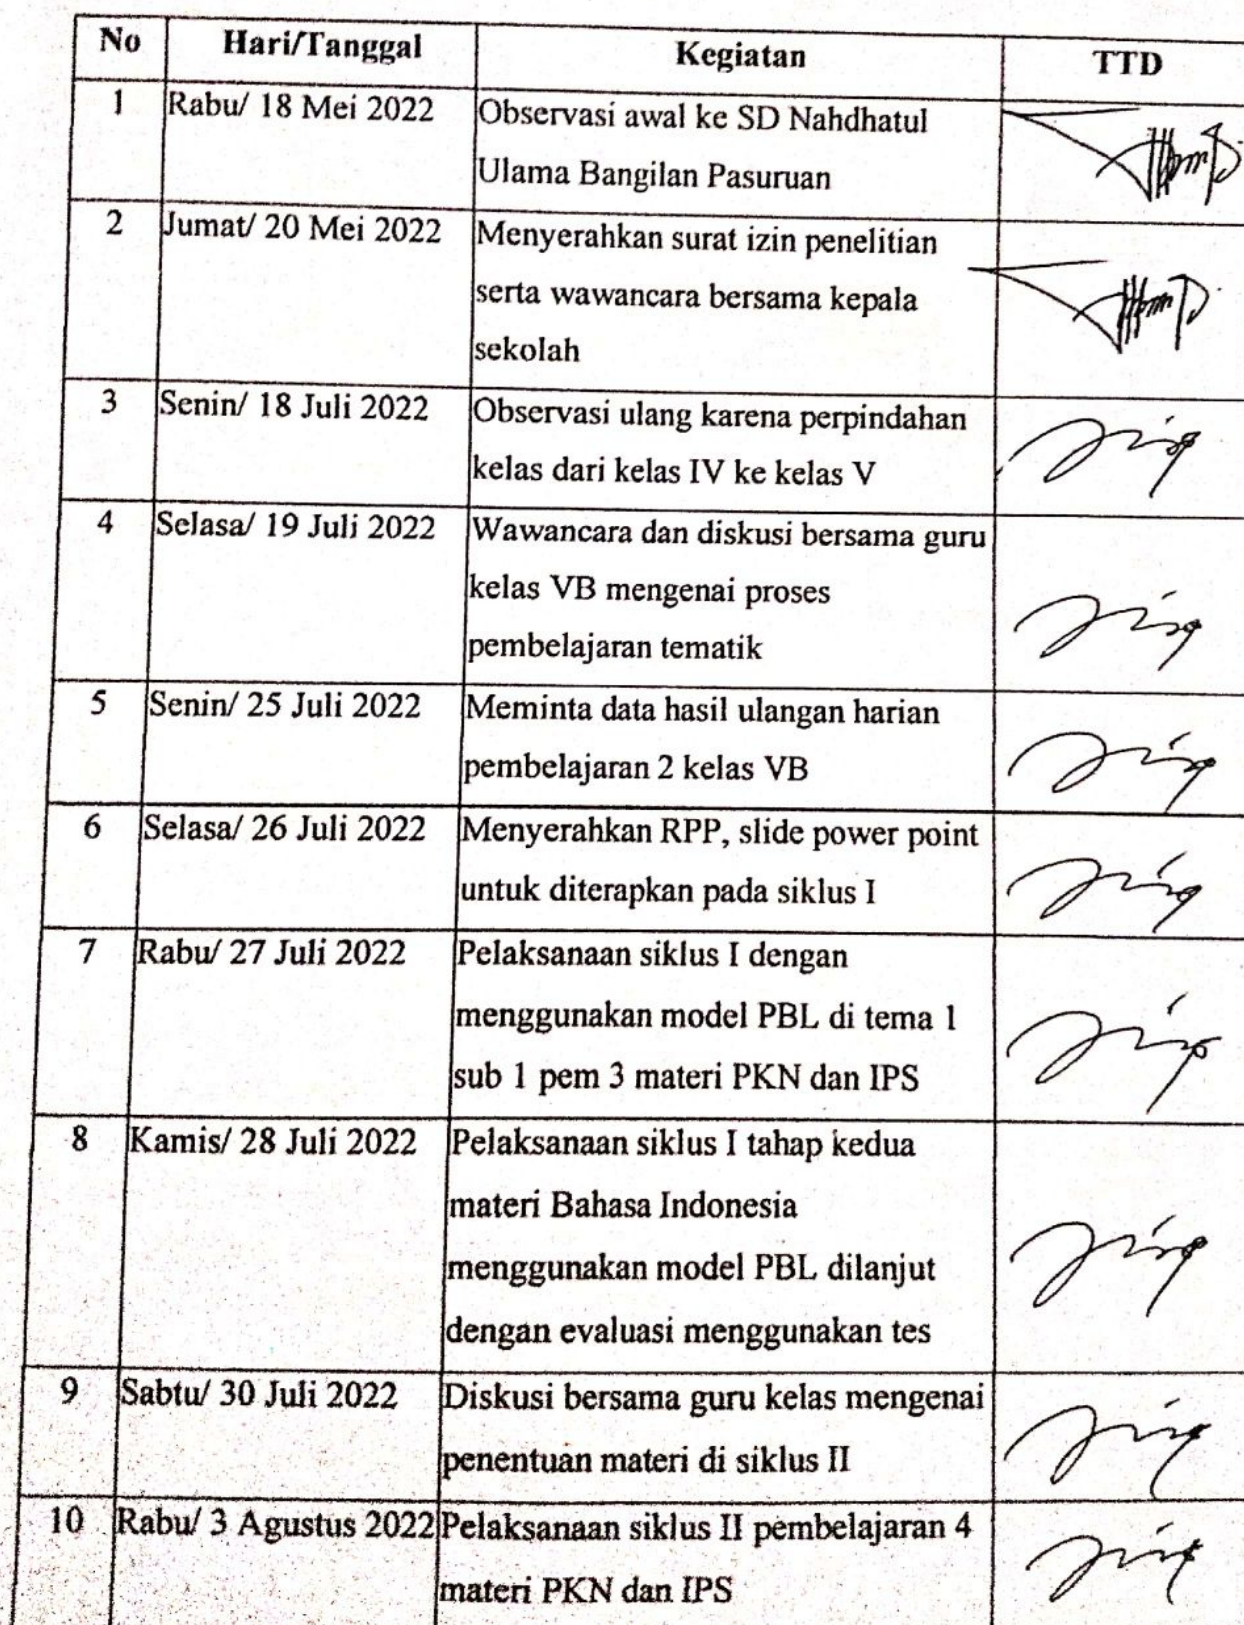 No Hari/Tanggal Kegiatan TTD
1 Rabu/ 18 Mei 2022 Observasi awal ke SD Nahdhatul
Ulama Bangilan Pasuruan
2 Jumat/ 20 Mei 2022 Menyerahkan surat izin penelitian
serta wawancara bersama kepala
sekolah
3 Senin/ 18 Juli 2022 Observasi ulang karena perpindahan
kelas dari kelas IV ke kelas V
4 Selasa/ 19 Juli 2022 Wawancara dan diskusi bersama guru
kelas VB mengenai proses
pembelajaran tematik
5 Senin/ 25 Juli 2022 Meminta data hasil ulangan harian
pembelajaran 2 kelas VB
6 Selasa/ 26 Juli 2022 Menyerahkan RPP, slide power point
untuk diterapkan pada siklus I
7 Rabu/ 27 Juli 2022 Pelaksanaan siklus I dengan
menggunakan model PBL di tema 1
sub 1 pem 3 materi PKN dan IPS
8 Kamis/ 28 Juli 2022 Pelaksanaan siklus I tahap kedua
materi Bahasa Indonesia
menggunakan model PBL dilanjut
dengan evaluasi menggunakan tes
9 Sabtu/ 30 Juli 2022 Diskusi bersama guru kelas mengenai
penentuan materi di siklus II
10 Rabu/ 3 Agustus 2022 Pelaksanaan siklus II pembelajaran 4
materi PKN dan IPS